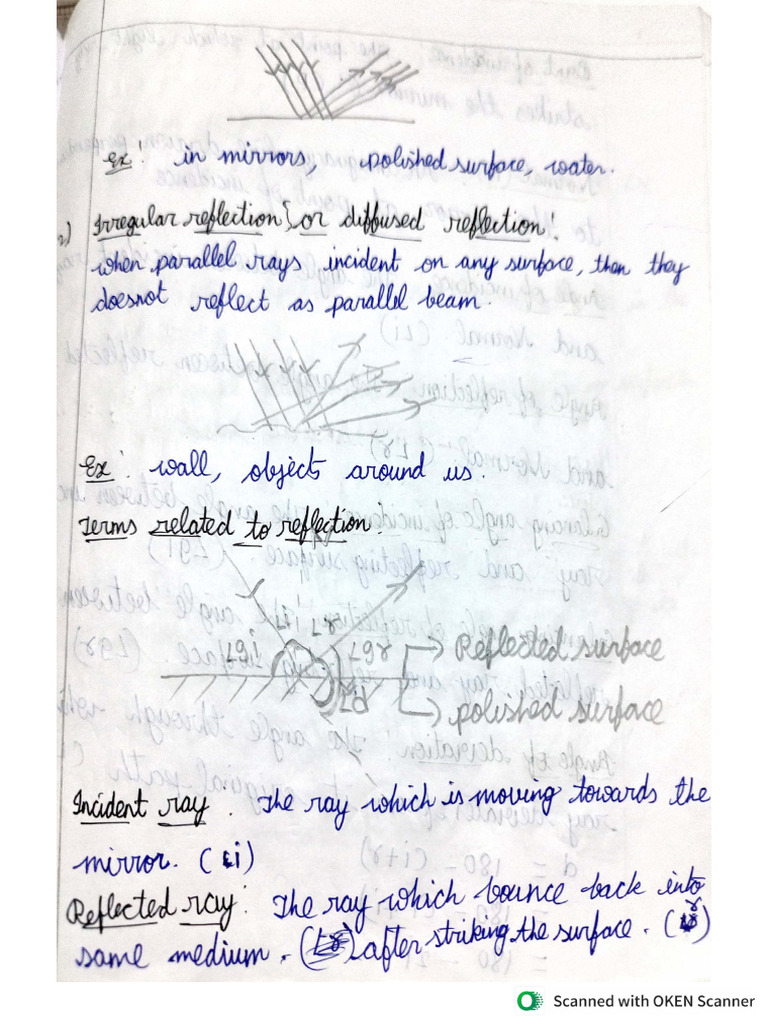 Ex: in mirrors, polished surface, water.
2) Irregular reflection} or diffused reflection:
when parallel rays incident on any surface, then they
doesnot reflect as parallel beam.
Ex: wall, objects around us.
Terms related to reflection:
∠i ∠r
∠gi ∠gr → Reflected surface
∠d → polished surface
Incident ray : The ray which is moving towards the
mirror. (i)
Reflected ray: The ray which bounce back into
same medium. after striking the surface. (r)
Scanned with OKEN Scanner